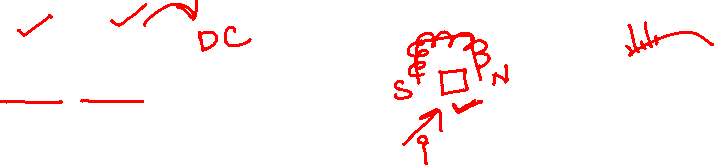 DC
S N